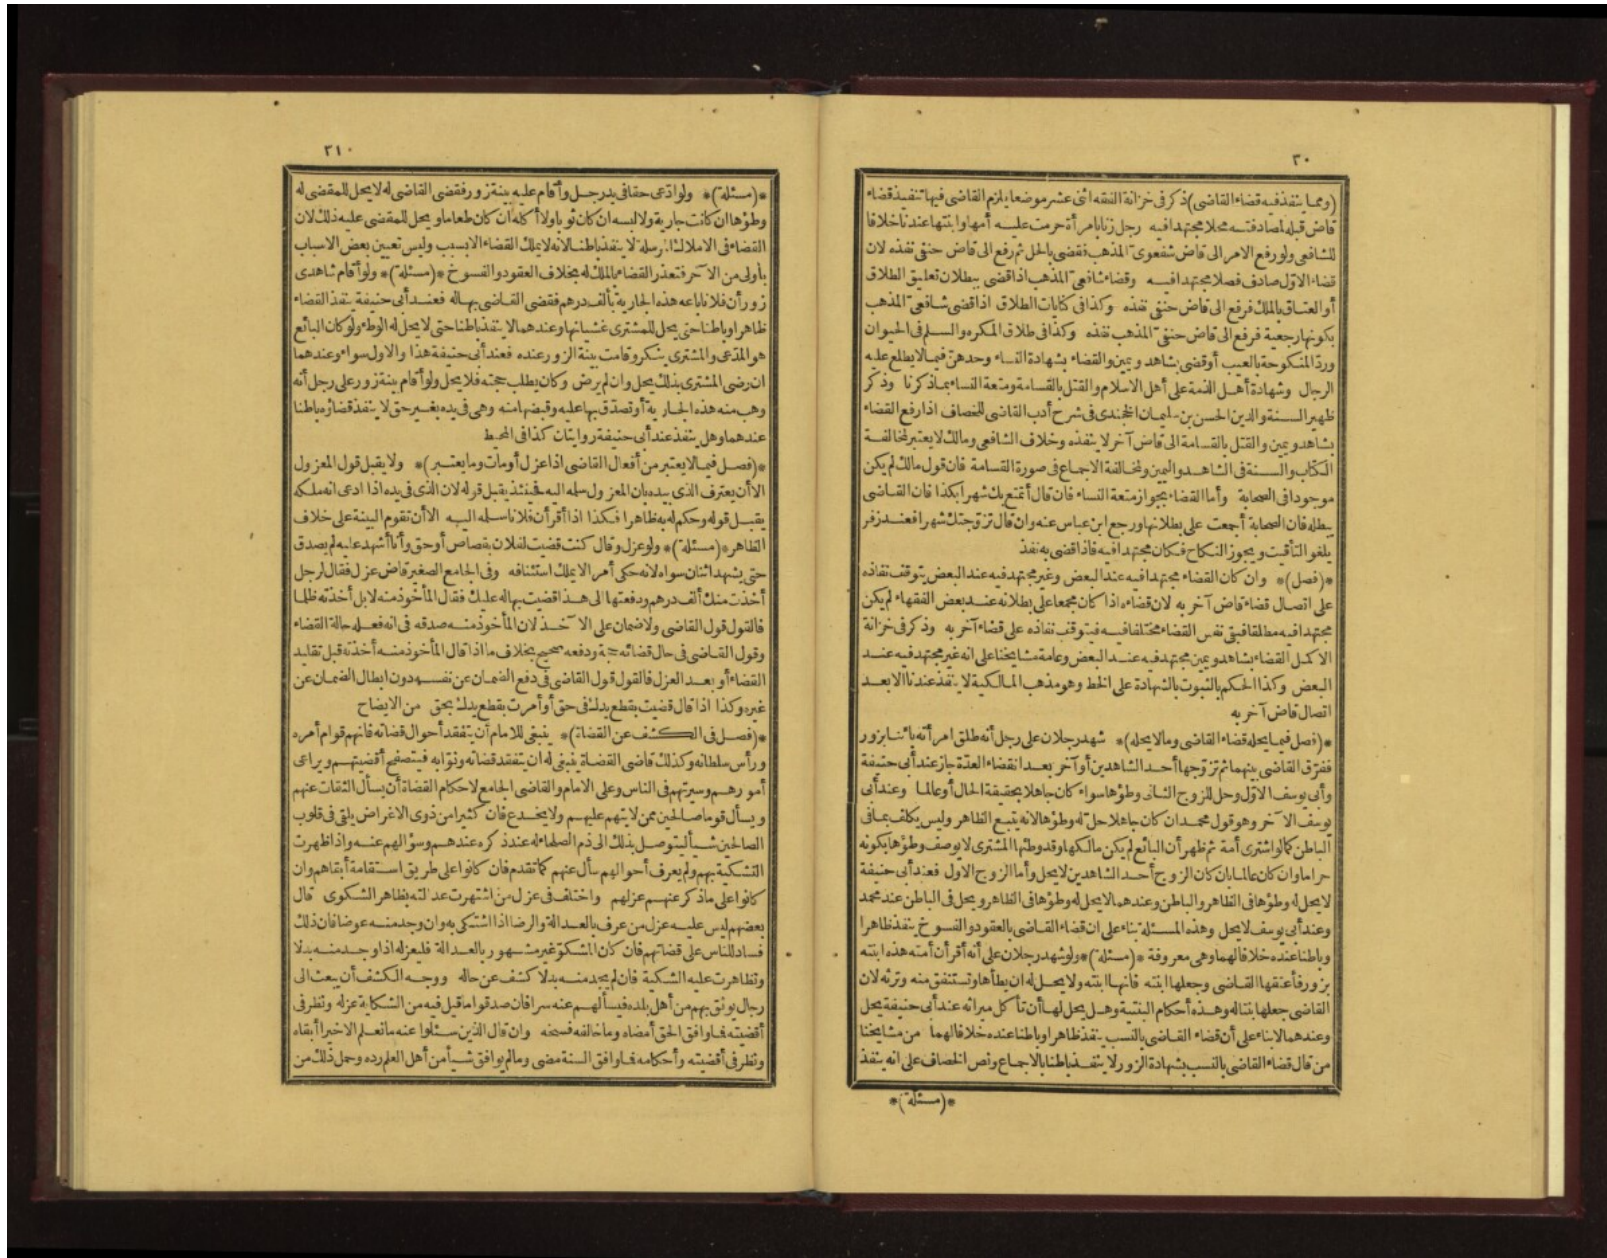 ٣٠
(ومما ينفذ فيه قضاء القاضى) ذكر فى خزانة الفقه اثنى عشر موضعا يلزم القاضى فيها تنفيذ قضاء
قاض قبله لمصادفته محلا مجتهدا فيه رجل زنا بامرأة حرمت عليه أمها وابنتها عندنا خلافا
للشافعى ولو رفع الامر الى قاض شفعوى المذهب فقضى بالحل ثم رفع الى قاض حنفى نفذه لان
قضاء الاول صادف فصلا مجتهدا فيه وقضاء شافعى المذهب اذا قضى ببطلان تعليق الطلاق
أو العتاق بالملك فرفع الى قاض حنفى نفذه وكذا فى كنايات الطلاق اذا قضى شافعى المذهب
بكونها رجعية فرفع الى قاض حنفى المذهب نفذه وكذا فى طلاق المكره والسلم فى الحيوان
ورد المنكوحة بالعيب أو قضى بشاهد ويمين والقضاء بشهادة النساء وحدهن فيما لا يطلع عليه
الرجال وشهادة أهل الذمة على أهل الاسلام والقتل بالقسامة ومتعة النساء بما ذكرنا وذكر
ظهير السنة والدين الحسن بن سليمان الخجندى فى شرح أدب القاضى للخصاف اذا رفع القضاء
بشاهد ويمين والقتل بالقسامة الى قاض آخر لا ينفذه وخلاف الشافعى ومالك لا يعتبر لمخالفة
الكتاب والسنة فى الشاهد واليمين ولمخالفة الاجماع فى صورة القسامة فان قول مالك لم يكن
موجودا فى الصحابة وأما القضاء بجواز متعة النساء فان قال أتمتع بك شهرا بكذا فان القاضى
يبطله فان الصحابة أجمعت على بطلانها ورجع ابن عباس عنه وان قال تزوجتك شهرا فعند زفر
يلغو التأقيت ويجوز النكاح فكان مجتهدا فيه فاذا قضى به نفذ
*(فصل)* وان كان القضاء مجتهدا فيه عند البعض وغير مجتهد فيه عند البعض يتوقف نفاذه
على اتصال قضاء قاض آخر به لان قضاءه اذا كان مجمعا على بطلانه عند بعض الفقهاء لم يكن
مجتهدا فيه مطلقا فبقى نفس القضاء مختلفا فيه فيتوقف نفاذه على قضاء آخر به وذكر فى خزانة
الاكمل القضاء بشاهد ويمين مجتهد فيه عند البعض وعامة مشايخنا على انه غير مجتهد فيه عند
البعض وكذا الحكم بالثبوت بالشهادة على الخط وهو مذهب المالكية لا ينفذ عندنا الا بعد
اتصال قاض آخر به
*(فصل فيما يحله قضاء القاضى وما لا يحله)* شهد رجلان على رجل أنه طلق امرأته بائنا بزور
ففرق القاضى بينهما ثم تزوجها أحد الشاهدين أو آخر بعد انقضاء العدة جاز عند أبى حنيفة
وأبى يوسف الاول وحل للزوج الثانى وطؤها سواء كان جاهلا بحقيقة الحال أو عالما وعند أبى
يوسف الآخر وهو قول محمد ان كان جاهلا حل له وطؤها لانه يتبع الظاهر وليس يكلف بما فى
الباطن كما لو اشترى أمة ثم ظهر أن البائع لم يكن مالكها وقد وطئها المشترى لا يوصف وطؤها بكونه
حراما وان كان عالما بان كان الزوج أحد الشاهدين لا يحل وأما الزوج الاول فعند أبى حنيفة
لا يحل له وطؤها فى الظاهر والباطن وعندهما لا يحل له وطؤها فى الظاهر ويحل فى الباطن عند محمد
وعند أبى يوسف لا يحل وهذه المسئلة بناء على ان قضاء القاضى بالعقود والفسوخ ينفذ ظاهرا
وباطنا عنده خلافا لهما وهى معروفة *(مسئلة)* ولو شهد رجلان على أنه أقر أن أمته هذه ابنته
بزور فأعتقها القاضى وجعلها ابنته فانها ابنته ولا يحل له ان يطأها وتستنفق منه وترثه لان
القاضى جعلها بنتا له وهذه أحكام البنتية وهل يحل لها أن تأكل ميراثه عند أبى حنيفة يحل
وعندهما لا بناء على أن قضاء القاضى بالنسب ينفذ ظاهرا وباطنا عنده خلافا لهما من مشايخنا
من قال قضاء القاضى بالنسب بشهادة الزور لا ينفذ باطنا بالاجماع ونص الخصاف على انه ينفذ
*(مسئلة)*
٣١
*(مسئلة)* ولو ادعى حقا فى يد رجل وأقام عليه بينة زور فقضى القاضى له لا يحل للمقضى له
وطؤها ان كانت جارية ولا لبسه ان كان ثوبا ولا أكله ان كان طعاما ويحل للمقضى عليه ذلك لان
القضاء فى الاملاك المرسلة لا ينفذ باطنا لانه لا يملك القضاء الا بسبب وليس تعيين بعض الاسباب
بأولى من الآخر فتعذر القضاء بالملك له بخلاف العقود والفسوخ *(مسئلة)* ولو أقام شاهدى
زور أن فلانا باعه هذه الجارية بألف درهم فقضى القاضى بها له فعند أبى حنيفة ينفذ القضاء
ظاهرا وباطنا حتى يحل للمشترى غشيانها وعندهما لا ينفذ باطنا حتى لا يحل له الوطء ولو كان البائع
هو المدعى والمشترى ينكر وقامت بينة الزور عنده فعند أبى حنيفة هذا والاول سواء وعندهما
ان رضى المشترى بذلك يحل وان لم يرض وكان يطلب حجته فلا يحل ولو أقام بينة زور على رجل أنه
وهب منه هذه الجارية أو تصدق بها عليه وقبضها منه وهى فى يده بغير حق لا ينفذ قضاؤه باطنا
عندهما وهل ينفذ عند أبى حنيفة روايتان كذا فى المحيط
*(فصل فيما لا يعتبر من أفعال القاضى اذا عزل أو مات وما يعتبر)* ولا يقبل قول المعزول
الا أن يعترف الذى بيده بان المعزول سلمه اليه فحينئذ يقبل قوله لان الذى فى يده اذا ادعى انه ملكه
يقبل قوله وحكم له به ظاهرا فكذا اذا أقر أن فلانا سلمه اليه الا أن تقوم البينة على خلاف
الظاهر *(مسئلة)* ولو عزل وقال كنت قضيت لفلان بقصاص أو حق وأنا أشهد عليه لم يصدق
حتى يشهد اثنان سواه لانه حكى أمرا لا يملك استئنافه وفى الجامع الصغير قاض عزل فقال لرجل
أخذت منك ألف درهم ودفعتها الى هذا قضيت بها له عليك فقال المأخوذ منه لا بل أخذته ظلما
فالقول قول القاضى ولا ضمان على الآخذ لان المأخوذ منه صدقه فى انه فعله حالة القضاء
وقول القاضى فى حال قضائه حجة ودفعه صحيح بخلاف ما اذا قال المأخوذ منه أخذته قبل تقليد
القضاء أو بعد العزل فالقول قول القاضى فى دفع الضمان عن نفسه دون ابطال الضمان عن
غيره وكذا اذا قال قضيت بقطع يدك فى حق أو أمرت بقطع يدك بحق من الايضاح
*(فصل فى الكشف عن القضاة)* ينبغى للامام أن يتفقد أحوال قضاته فانهم قوام أمره
ورأس سلطانه وكذلك قاضى القضاة ينبغى له ان يتفقد قضاته ونوابه فيتصفح أقضيتهم ويراعى
أمورهم وسيرتهم فى الناس وعلى الامام والقاضى الجامع لاحكام القضاة أن يسأل الثقات عنهم
ويسأل قوما صالحين ممن لا يتهم عليهم ولا يخدع فان كثيرا من ذوى الاغراض يلقى فى قلوب
الصالحين شيأ ليتوصل بذلك الى ذم الصلحاء له عند ذكره عندهم وسؤالهم عنه واذا ظهرت
التشكية بهم ولم يعرف أحوالهم سأل عنهم كما تقدم فان كانوا على طريق استقامة أبقاهم وان
كانوا على ما ذكر عنهم عزلهم واختلف فى عزل من اشتهرت عدالته بظاهر الشكوى قال
بعضهم ليس عليه عزل من عرف بالعدالة والرضا اذا اشتكى به وان وجد منه عوضا فان ذلك
فساد للناس على قضاتهم فان كان المشكو غير مشهور بالعدالة فليعزله اذا وجد منه بدلا
وتظاهرت عليه الشكية فان لم يجد منه بدلا كشف عن حاله ووجه الكشف أن يبعث الى
رجال يوثق بهم من أهل بلده فيسألهم عنه سرا فان صدقوا ما قيل فيه من الشكاية عزله ونظر فى
أقضيته فما وافق الحق أمضاه وما خالفه فسخه وان قال الذين سئلوا عنه ما نعلم الا خيرا أبقاه
ونظر فى أقضيته وأحكامه فما وافق السنة مضى وما لم يوافق شيأ من أهل العلم رده وحمل ذلك من